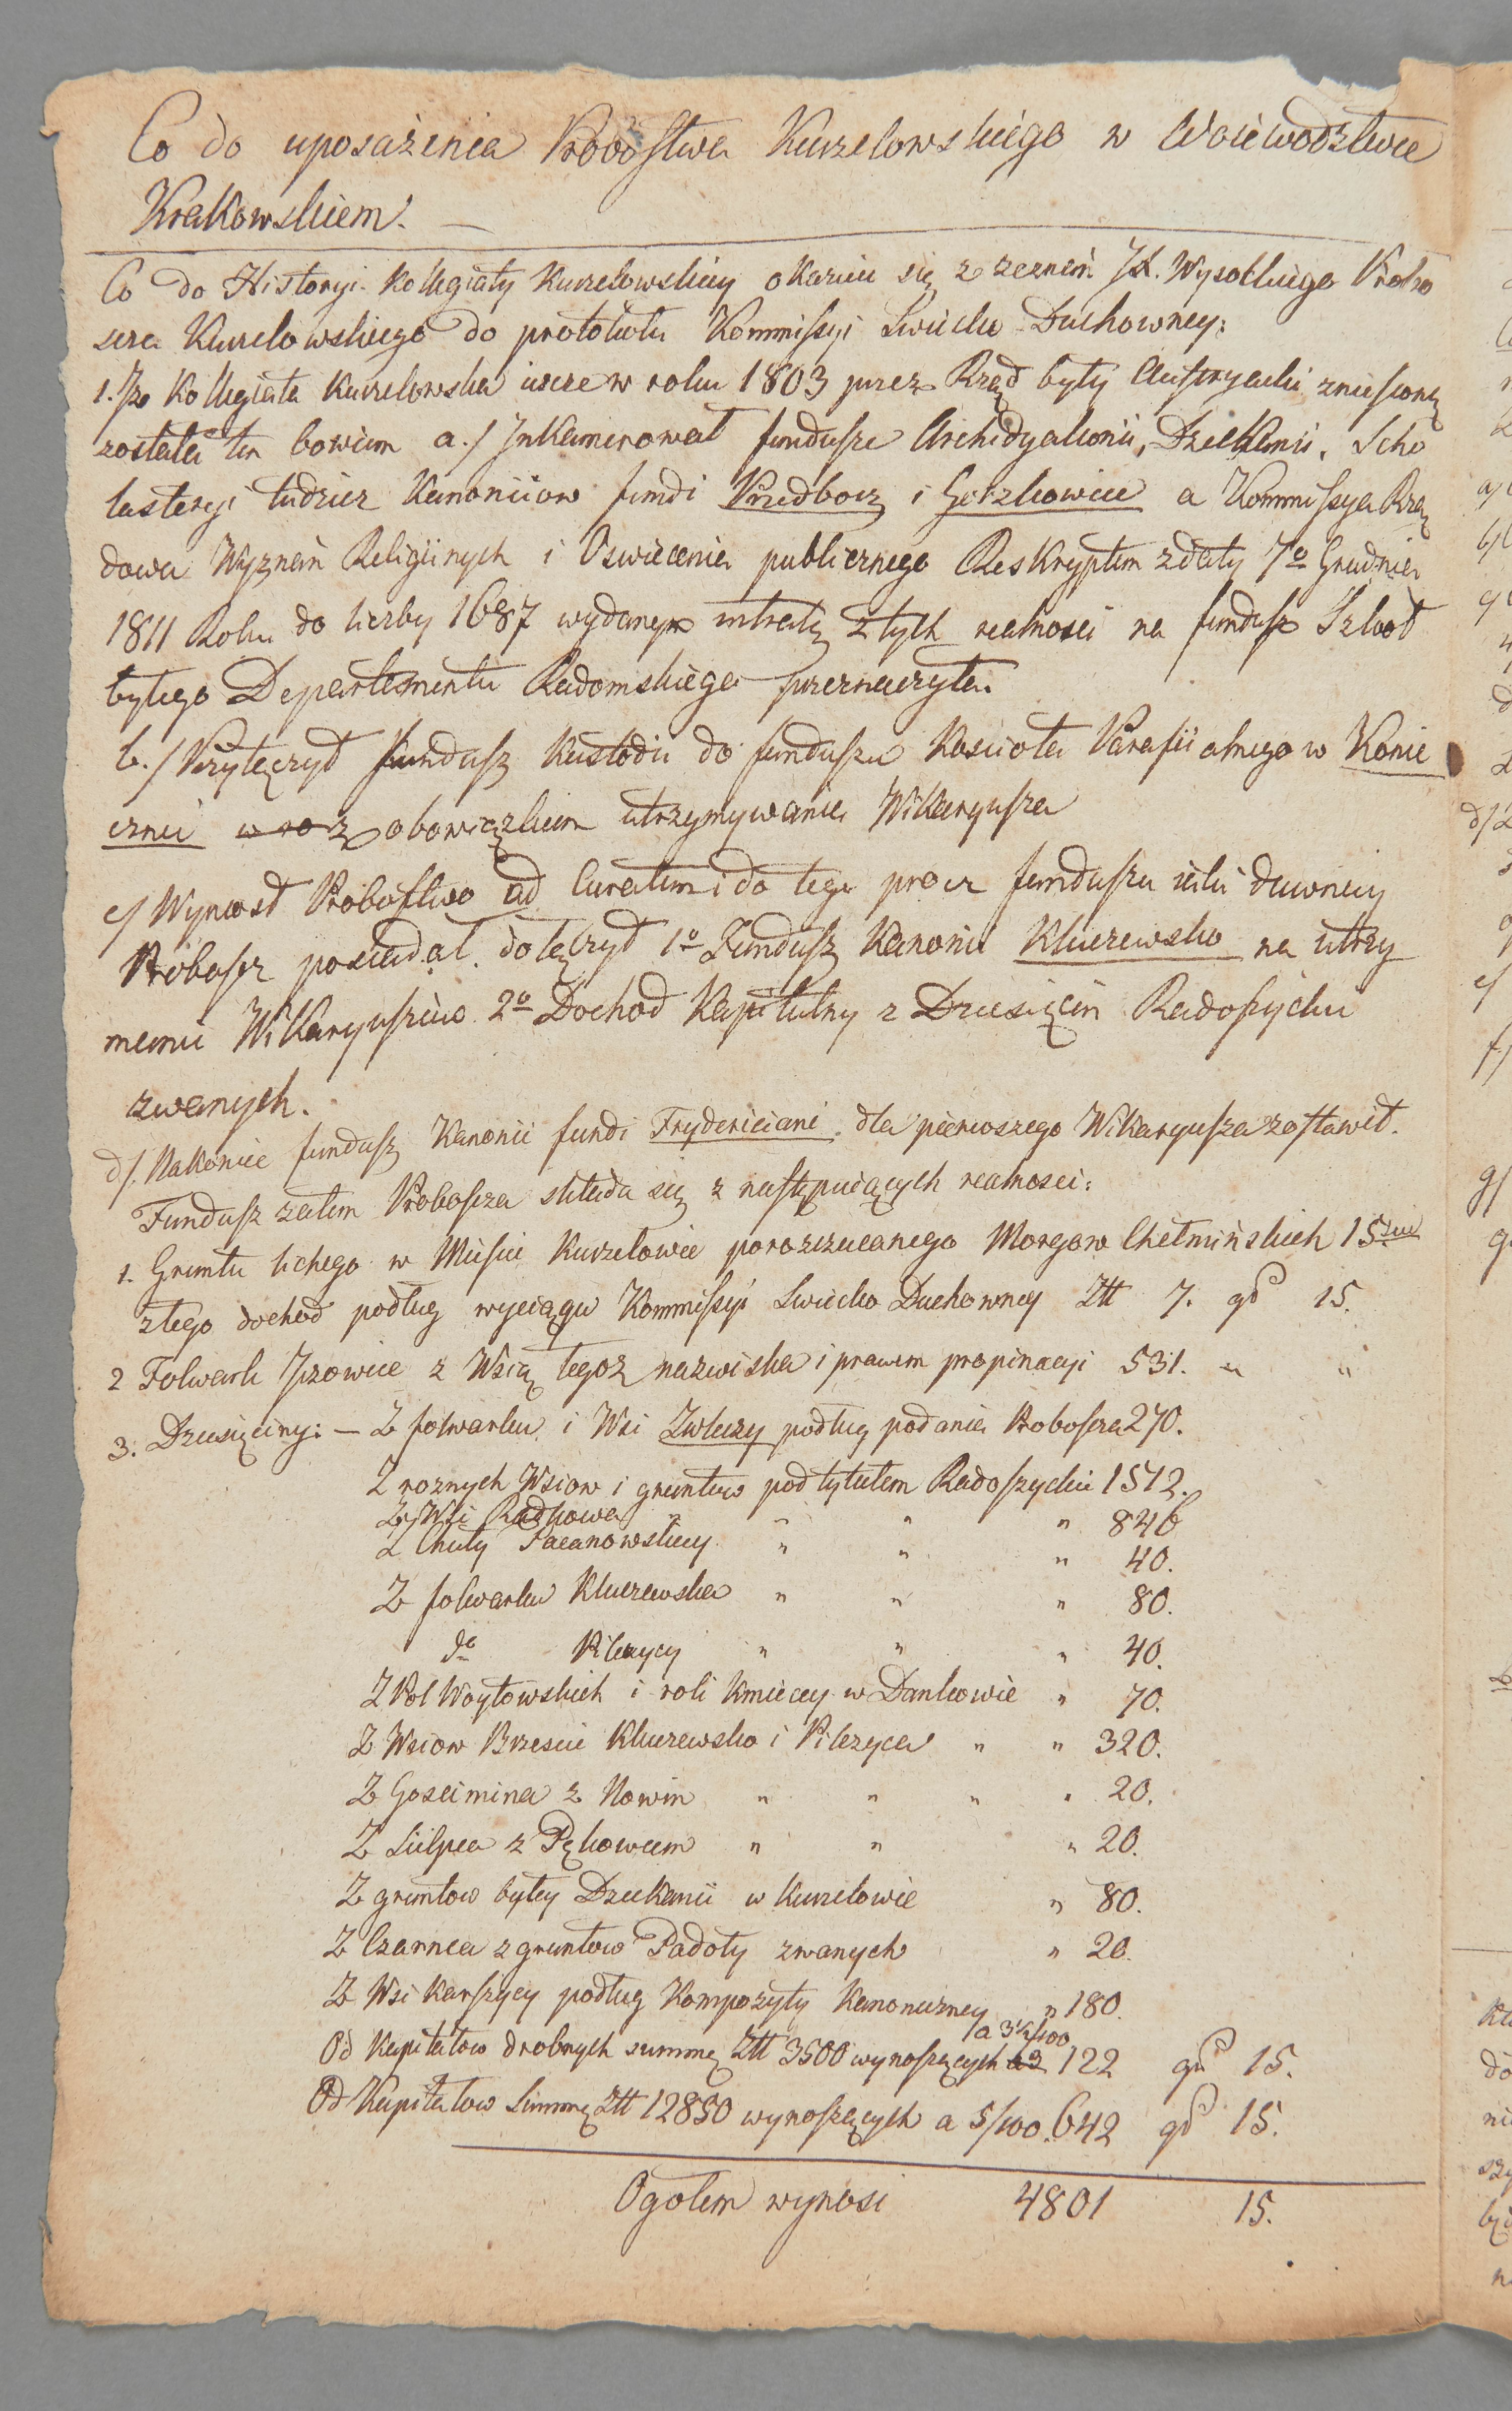 Co do uposażenia Probostwa Kurzelowskiego w Woiewodztwie
Krakowskiem. —
Co do Historyi Kollegiaty Kurzelowskiey okazuie się z zeznań JX. Wysockiego Probo
scza Kurzelowskiego do protokułu Kommissyi Swiecko Duchowney:
1. Że Kollegiata Kurzelowska ieszcze w roku 1803 przez Rząd były Austryacki zniesioną
została ten bowiem a./ Inkamerował fundusze Archidyakonii, Dziekanii, Scho
lasteryi tudzież Kanoniiow fundi Przedborz i Gorzkowice a Kommissya Rzą
dowa Wyznań Religiinych i Oswiecenia publicznego Reskryptem z daty 7o Grudnia
1811 Roku do liczby 1687 wydanym intratę z tych realnosci na fundusz Szkoł
byłego Departamentu Radomskiego przeznaczyła.
b./ Przyłączył fundusz Kustodii do funduszu Kościoła Parafiialnego w Konie
cznie z obowiązkiem utrzymywania Wikaryusza
c/ Wyniosł Probostwo ad Curatum i do tego procz funduszu iaki dawniey
Proboszcz posiadał dołączył 1o Fundusz Kanonii Kluczewsko na utrzy
manie Wikaryuszow 2o Dochod Kapitulny z Dziesięcin Radoszyckie
zwanych.
d/. Nakoniec fundusz Kanonii fundi Frydericiani dla pierwszego Wikaryusza zostawił.
Fundusz zatem Proboscza składa się z następuiących realnosci:
1. Gruntu lichego w Miescie Kurzelowie porozrzucanego Morgow Chełmińskich 15
z tego dochod podług wyciągu Kommissyi Swiecko Duchowney Złł 7. gr 15.
2 Folwark Jzowice z Wsią tegoż nazwiska i prawem propinacyi 531. " "
3. Dziesięciny: — Z folwarku i Wsi Zwleczy podług podania Proboscza 270.
Z roznych Wsiow i gruntow pod tytułem Radoszyckie 1512.
Z Wsi Radkowa " " " 846
Z Chuty Pacanowskiey " " " 40.
Z folwarku Kluczewska " " " 80.
do Pilczycy " " " 40.
Z Pol Woytowskich i roli Kmiecey w Dankowie " 70.
Z Wsiow Brzescie Kluczewsko i Pilczyca " " 320.
Z Goscimina z Nowin " " " " 20.
Z Sielpca z Pękowcem " " " 20.
Z gruntow byłey Dziekanii w Kurzelowie " 80.
Z Czarnca z gruntow Padoły zwanych " 20.
Z Wsi Karszycy podług Kompozyty Kanoniczney " 180.
Od Kapitałow drobnych summę Złł 3500 wynoszących a 3½/100 122 gr 15.
Od Kapitałow Summę Złł 12850 wynoszących a 5/100. 642 gr 15.
Ogołem wynosi 4801 15.